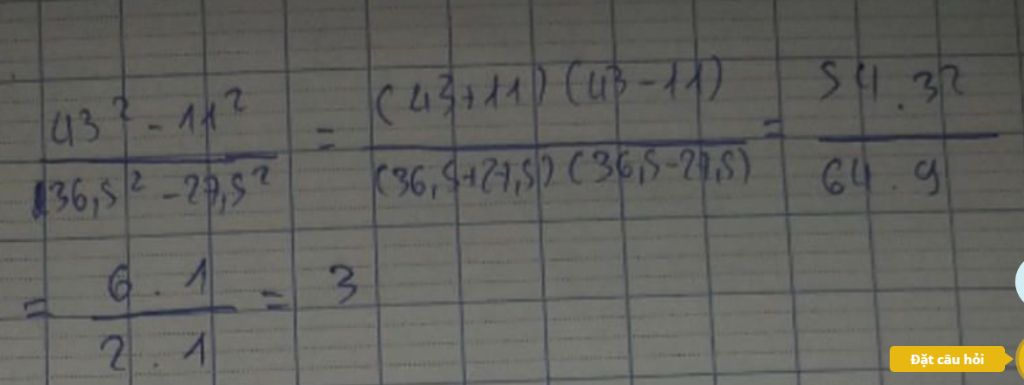 43² - 11² / 36,5² - 27,5² = (43+11)(43-11) / (36,5+27,5)(36,5-27,5) = 54.32 / 64.9
= 6.1 / 2.1 = 3
Đặt câu hỏi